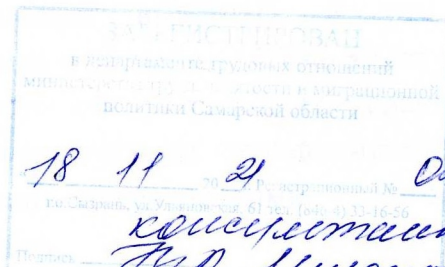 ЗАРЕГИСТРИРОВАН
в департаменте трудовых отношений
министерства труда, занятости и миграционной
политики Самарской области
18 11 20 21 Регистрационный №
г.о. Сызрань, ул. Ульяновская, 61 тел. (846-4) 33-16-56
Подпись